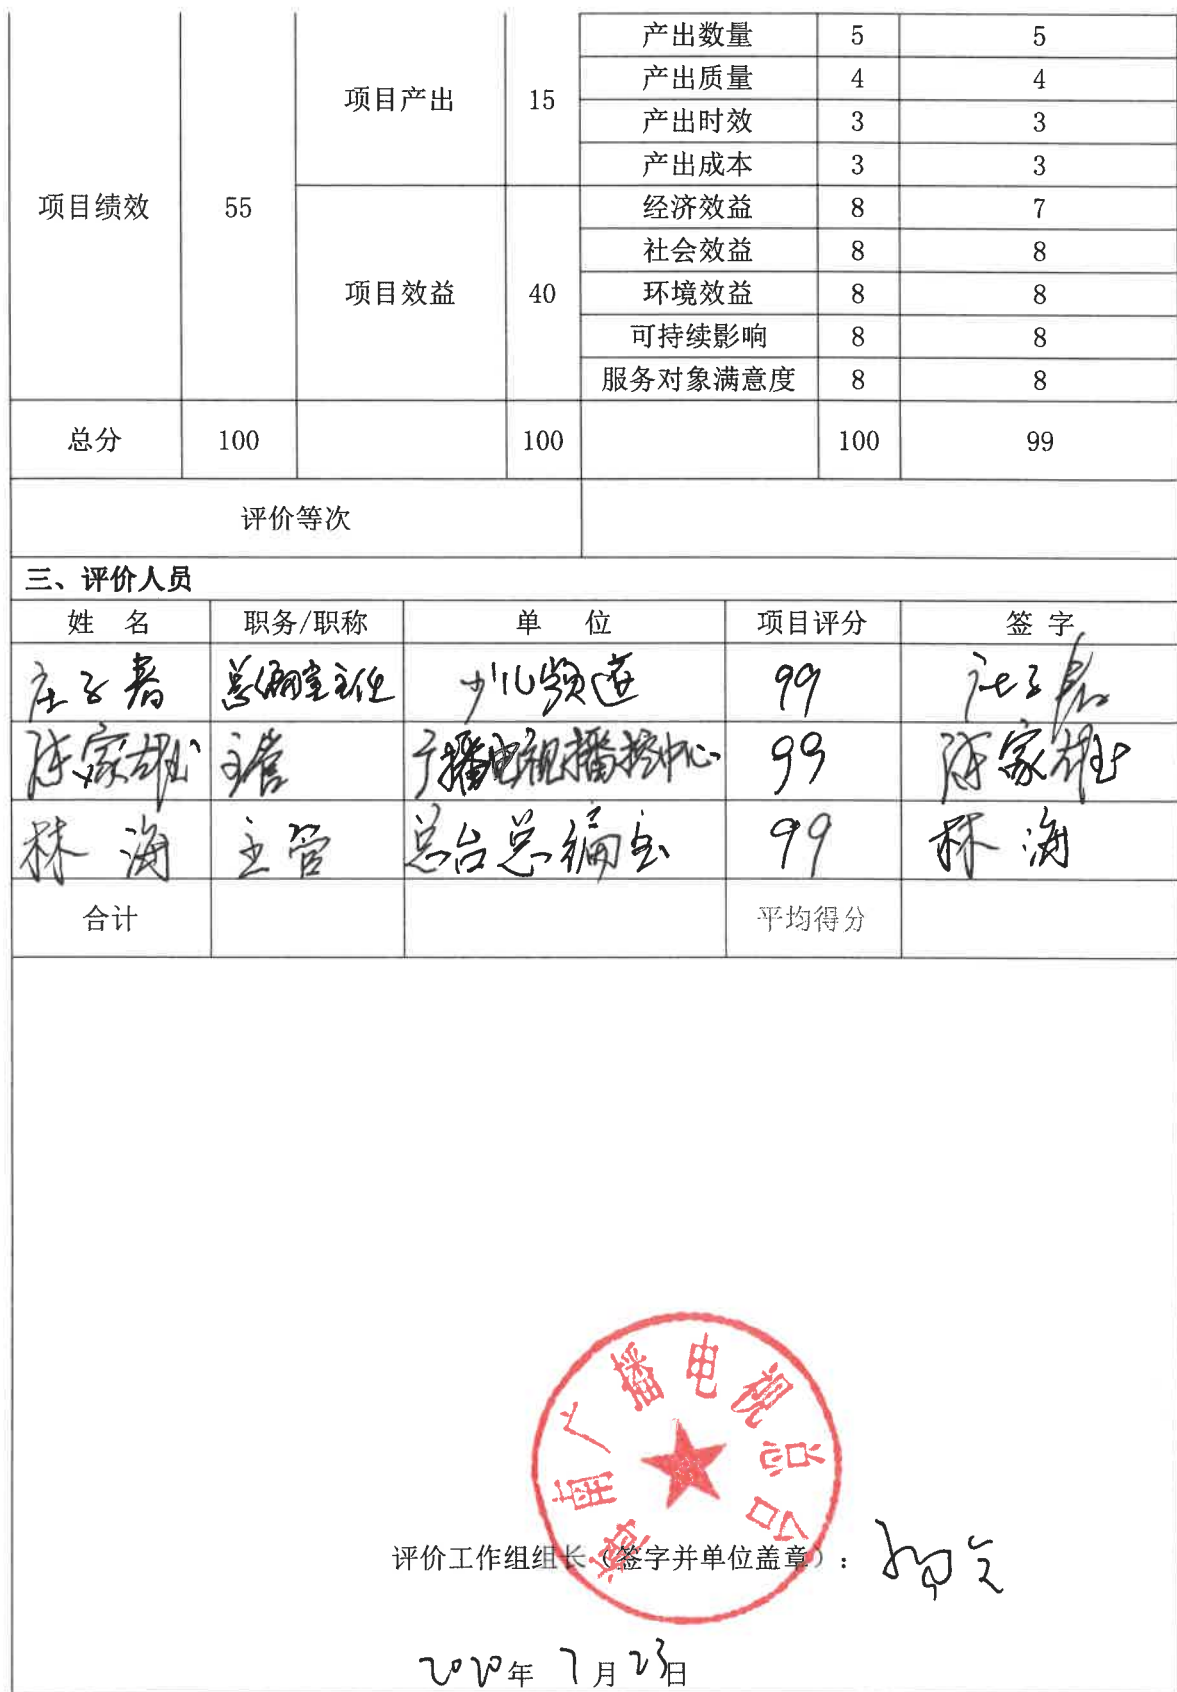 产出数量 5 5
项目产出 15 产出质量 4 4
产出时效 3 3
产出成本 3 3
项目绩效 55 经济效益 8 7
社会效益 8 8
项目效益 40 环境效益 8 8
可持续影响 8 8
服务对象满意度 8 8
总分 100 100 100 99
评价等次
三、评价人员
姓 名 职务/职称 单 位 项目评分 签 字
总编室主任 少儿频道 99
陈家雄 主管 广播电视播控中心 99 陈家雄
林海 主管 总台总编室 99 林海
合计 平均得分
海南广播电视总台
评价工作组组长(签字并单位盖章):
2020年 7月23日